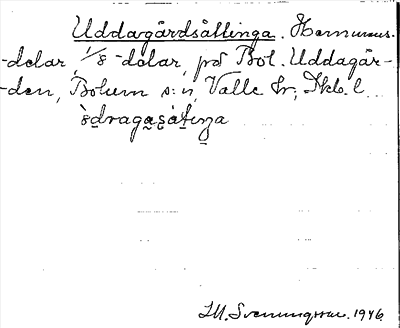 Uddagårdsåttinga. Hemmans-
-delar, 1/8 -delar, på Bol. Uddagår-
-den, Bolum s:n, Valle hr, Skb. l.
M. Svenungsson. 1946.